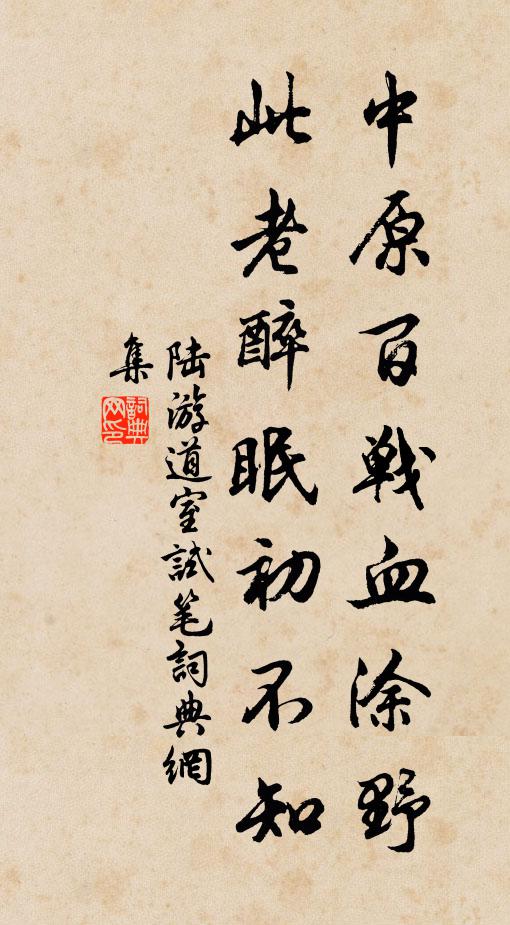 中原百戰血涂野
此老醉眠初不知
陆游道室試笔詞典網
集
詞典網印